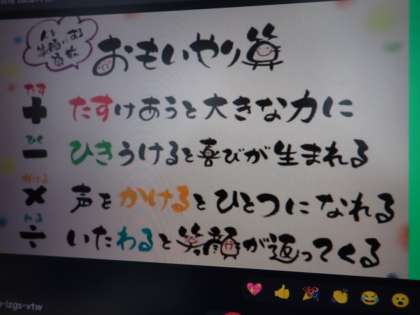 おもいやり算
たす
+ たすけあうと大きな力に
ひく
− ひきうけると喜びが生まれる
かける
× 声をかけるとひとつになれる
わる
÷ いたわると笑顔が返ってくる